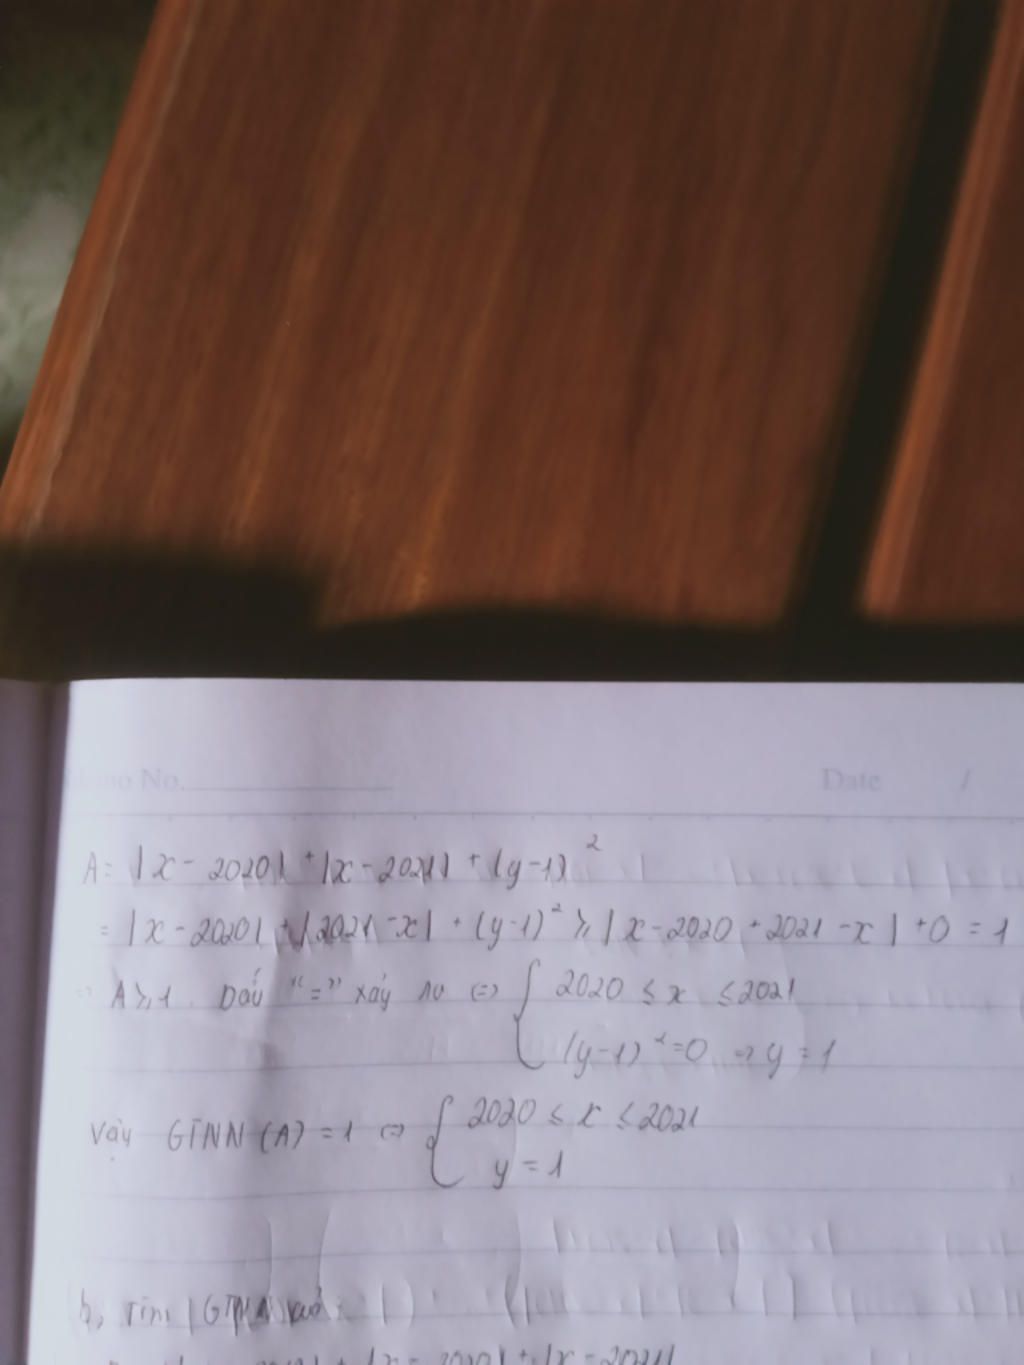 Memo No.
Date /
A = |x - 2020| + |x - 2021| + (y-1)²
= |x - 2020| + |2021 - x| + (y-1)² ⩾ |x - 2020 + 2021 - x| + 0 = 1
⇒ A ⩾ 1. Dấu "=" xảy ra ⇔ { 2020 ≤ x ≤ 2021
(y-1)² = 0 ⇒ y = 1
Vậy GTNN (A) = 1 ⇔ { 2020 ≤ x ≤ 2021
y = 1
b, Tìm GTNN của:
| + |x - 2020| + |x - 2021|